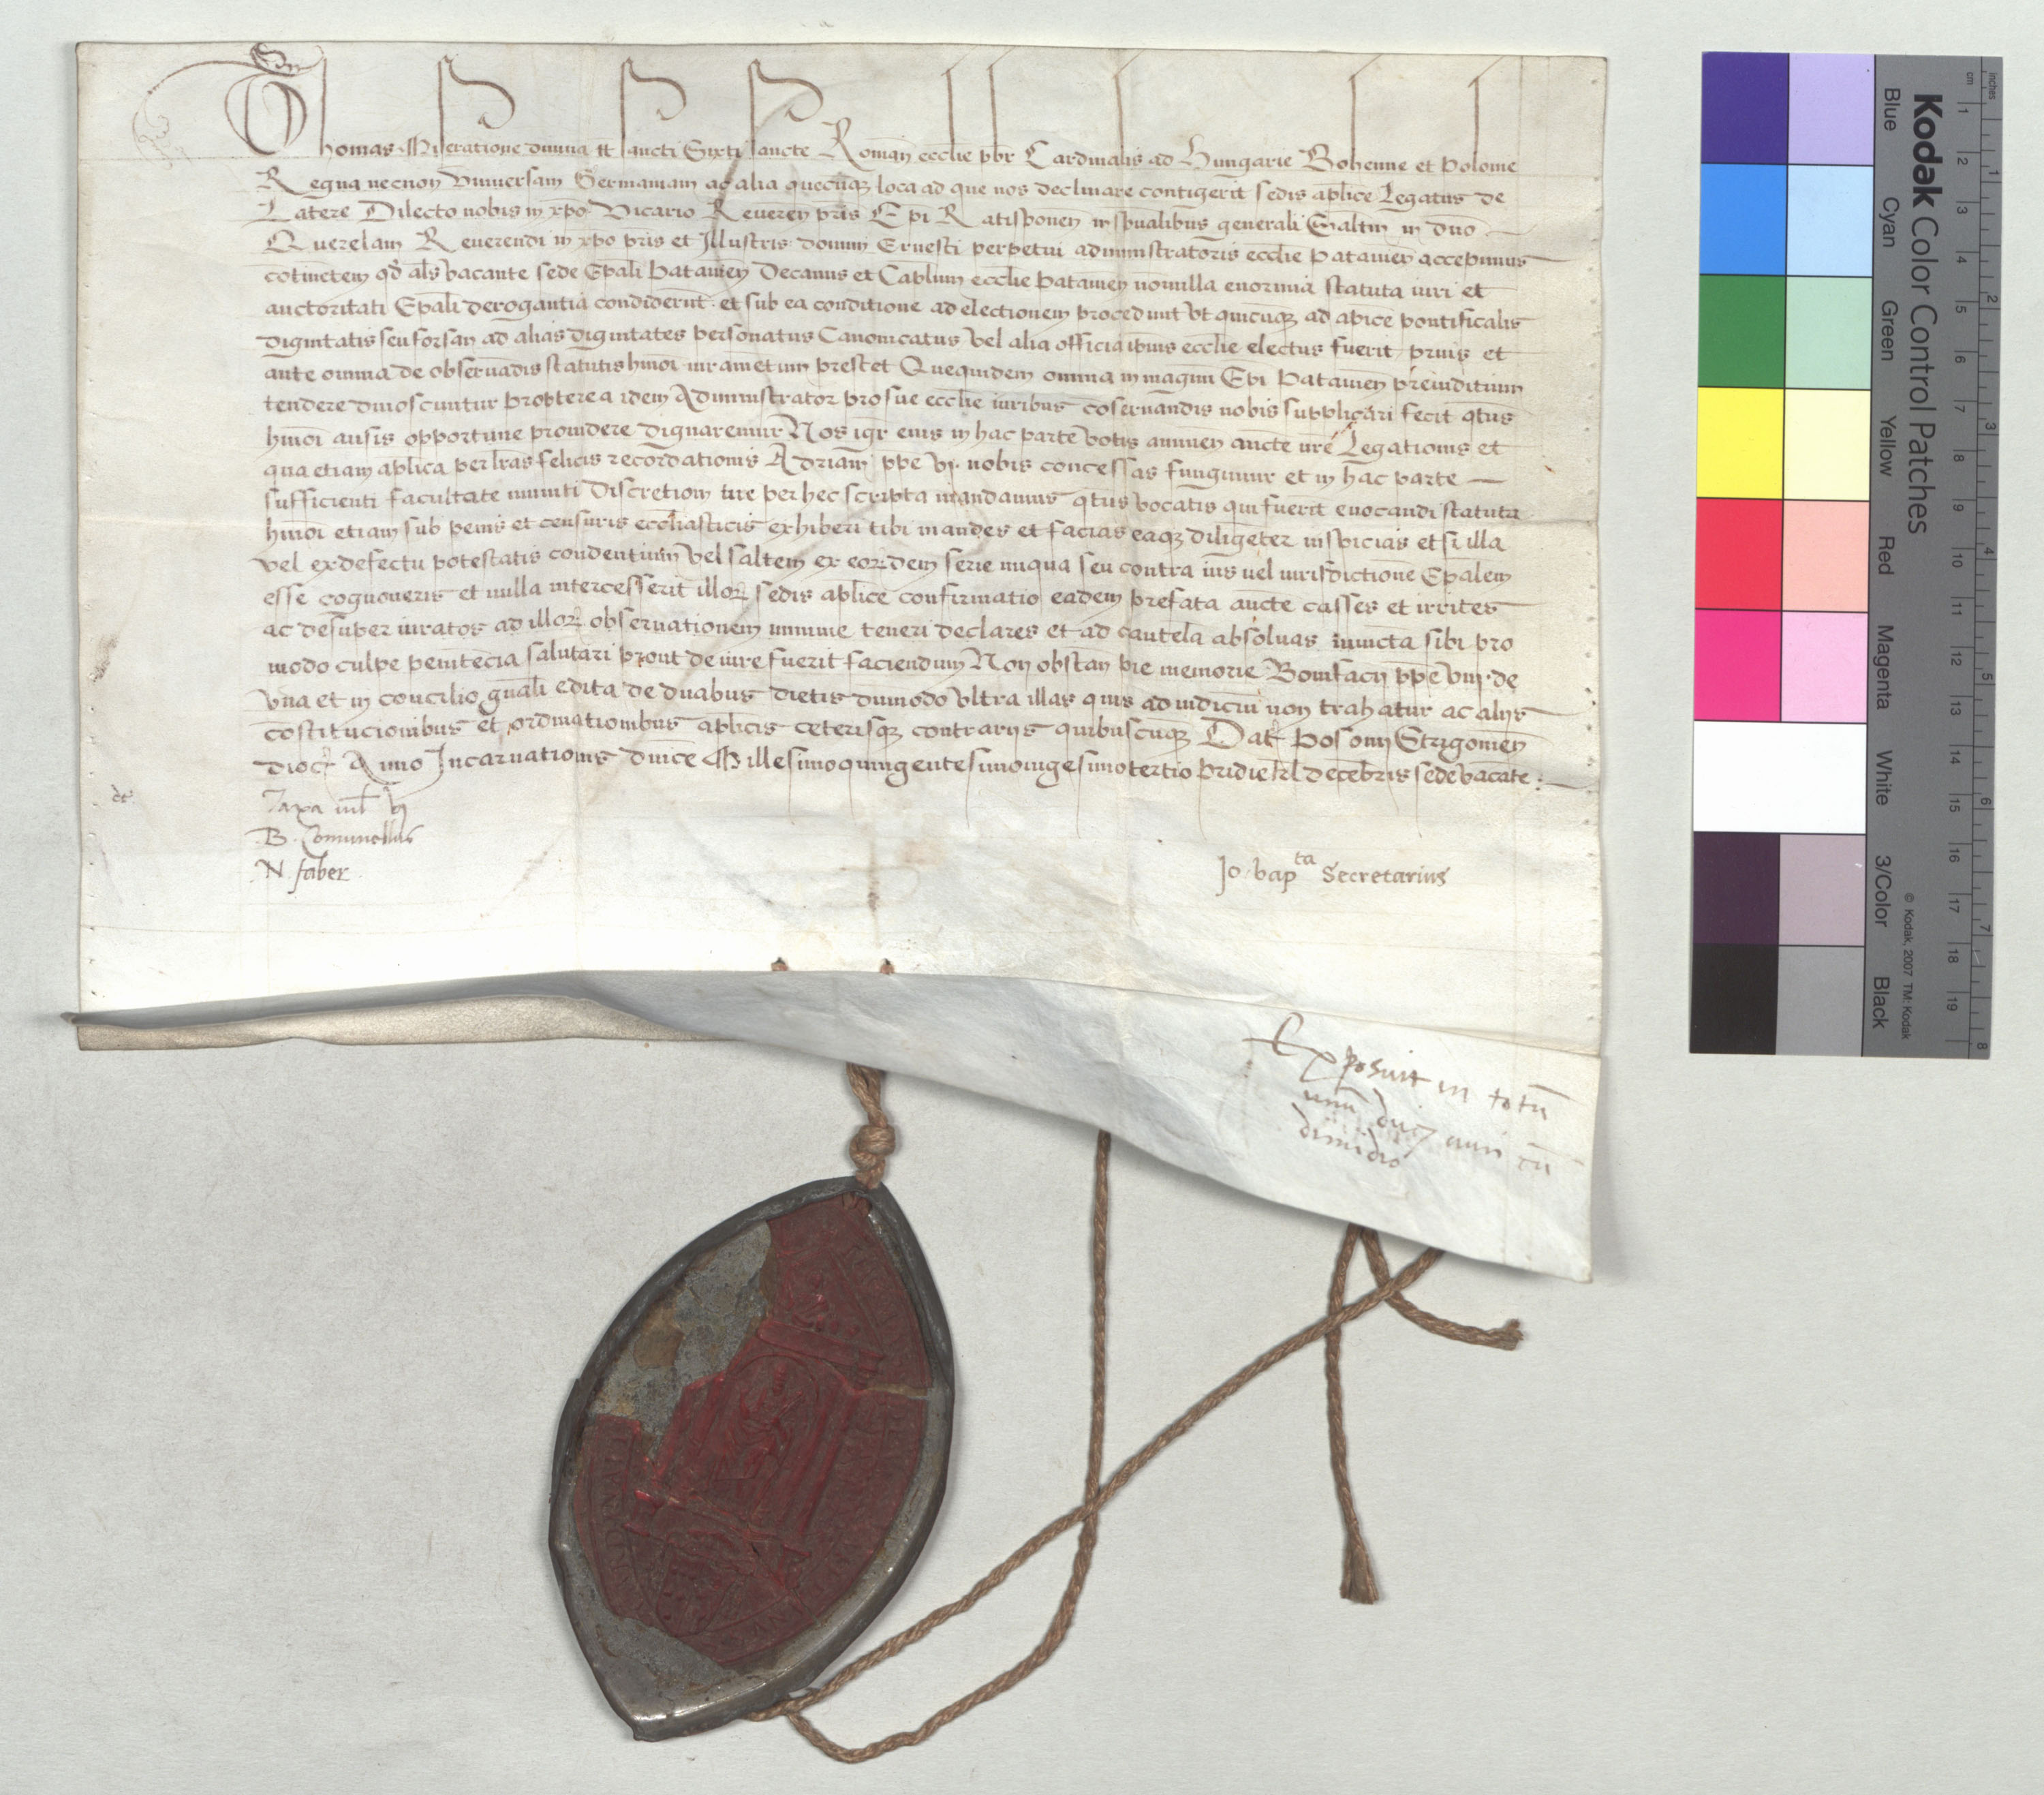 Thomas Miseratione divina tt sancti Sixti sancte Roman ecclie pbr Cardinalis ad Hungarie Bohemie et Polonie
Regna necnon Universam Germaniam ac alia quecūq loca ad que nos declinare contigerit sedis aplice Legatus de
Latere Dilecto nobis in xpo Vicario Reveren pris Epi Ratisponen in spualibus generali Saltm in dno
Querelam Reverendi in xpo pris et Illustris domini Ernesti perpetui administratoris ecclie Patavien accepimus
cōtinētem qd als vacante sede Epali Patavien Decanus et Caplum ecclie Patavien nonnulla enormia statuta iuri et
auctoritati Epali derogantia condiderūt et sub ea conditione ad electionem procedunt ut quicūq ad apicē pontificalis
dignitatis seu forsan ad alias dignitates personatus Canonicatus vel alia officia ipius ecclie electus fuerit prius et
ante omnia de observādis statutis hmoi iuramētum prestet Quequidem omnia in magnū Epi Patavien preiuditium
tendere dinoscuntur Propterea idem Administrator pro sue ecclie iuribus cōservandis nobis supplicari fecit qtus
hmoi ausis opportune providere dignaremur Nos igr eius in hac parte votis annuen aucte nre Legationis et
qua etiam aplica per lras felicis recordationis Adriani ppe vi nobis concessas fungimur et in hac parte
sufficienti facultate muniti Discretioni tue per hec scripta mandamus qtus vocatis qui fuerit evocandi statuta
hmoi etiam sub penis et censuris ecclīasticis exhiberi tibi mandes et facias eaq diligēter inspicias et si illa
vel ex defectu potestatis condentium vel saltem ex eordem serie iniqua seu contra ius vel iurisdictione Epalem
esse cognoveris et nulla intercesserit illor sedis aplice confirmatio eadem prefata aucte casses et irrites
ac desuper iuratos ad illor observationem minime teneri declares et ad cautelā absolvas iniuncta sibi pro
modo culpe penitēcia salutari prout de iure fuerit faciendum Non obstan pie memorie Bonifacij ppe viij de
una et in concilio gnali edita de duabus dietis dūmodo ultra illas quis ad iudiciū non trahatur ac alijs
cōstitucionibus et ordinationibus aplicis ceterisq contrarijs quibuscūq Dat Posonij Strigonien
dioc Anno Incarnationis dnice Millesimoquingentesimovigesimotertio Pridie kl decēbris sede vacāte
Taxa
B. Comunellus
N. faber
Jo. bap ta Secretarius
Exposuit in totū
unū duc auri cū
dimidio
Kodak Color Control Patches
Blue Cyan Green Yellow Red Magenta White 3/Color Black
cm 1 2 3 4 5 6 7 8 9 10 11 12 13 14 15 16 17 18 19
inches 1 2 3 4 5 6 7 8
© Kodak, 2007 TM: Kodak